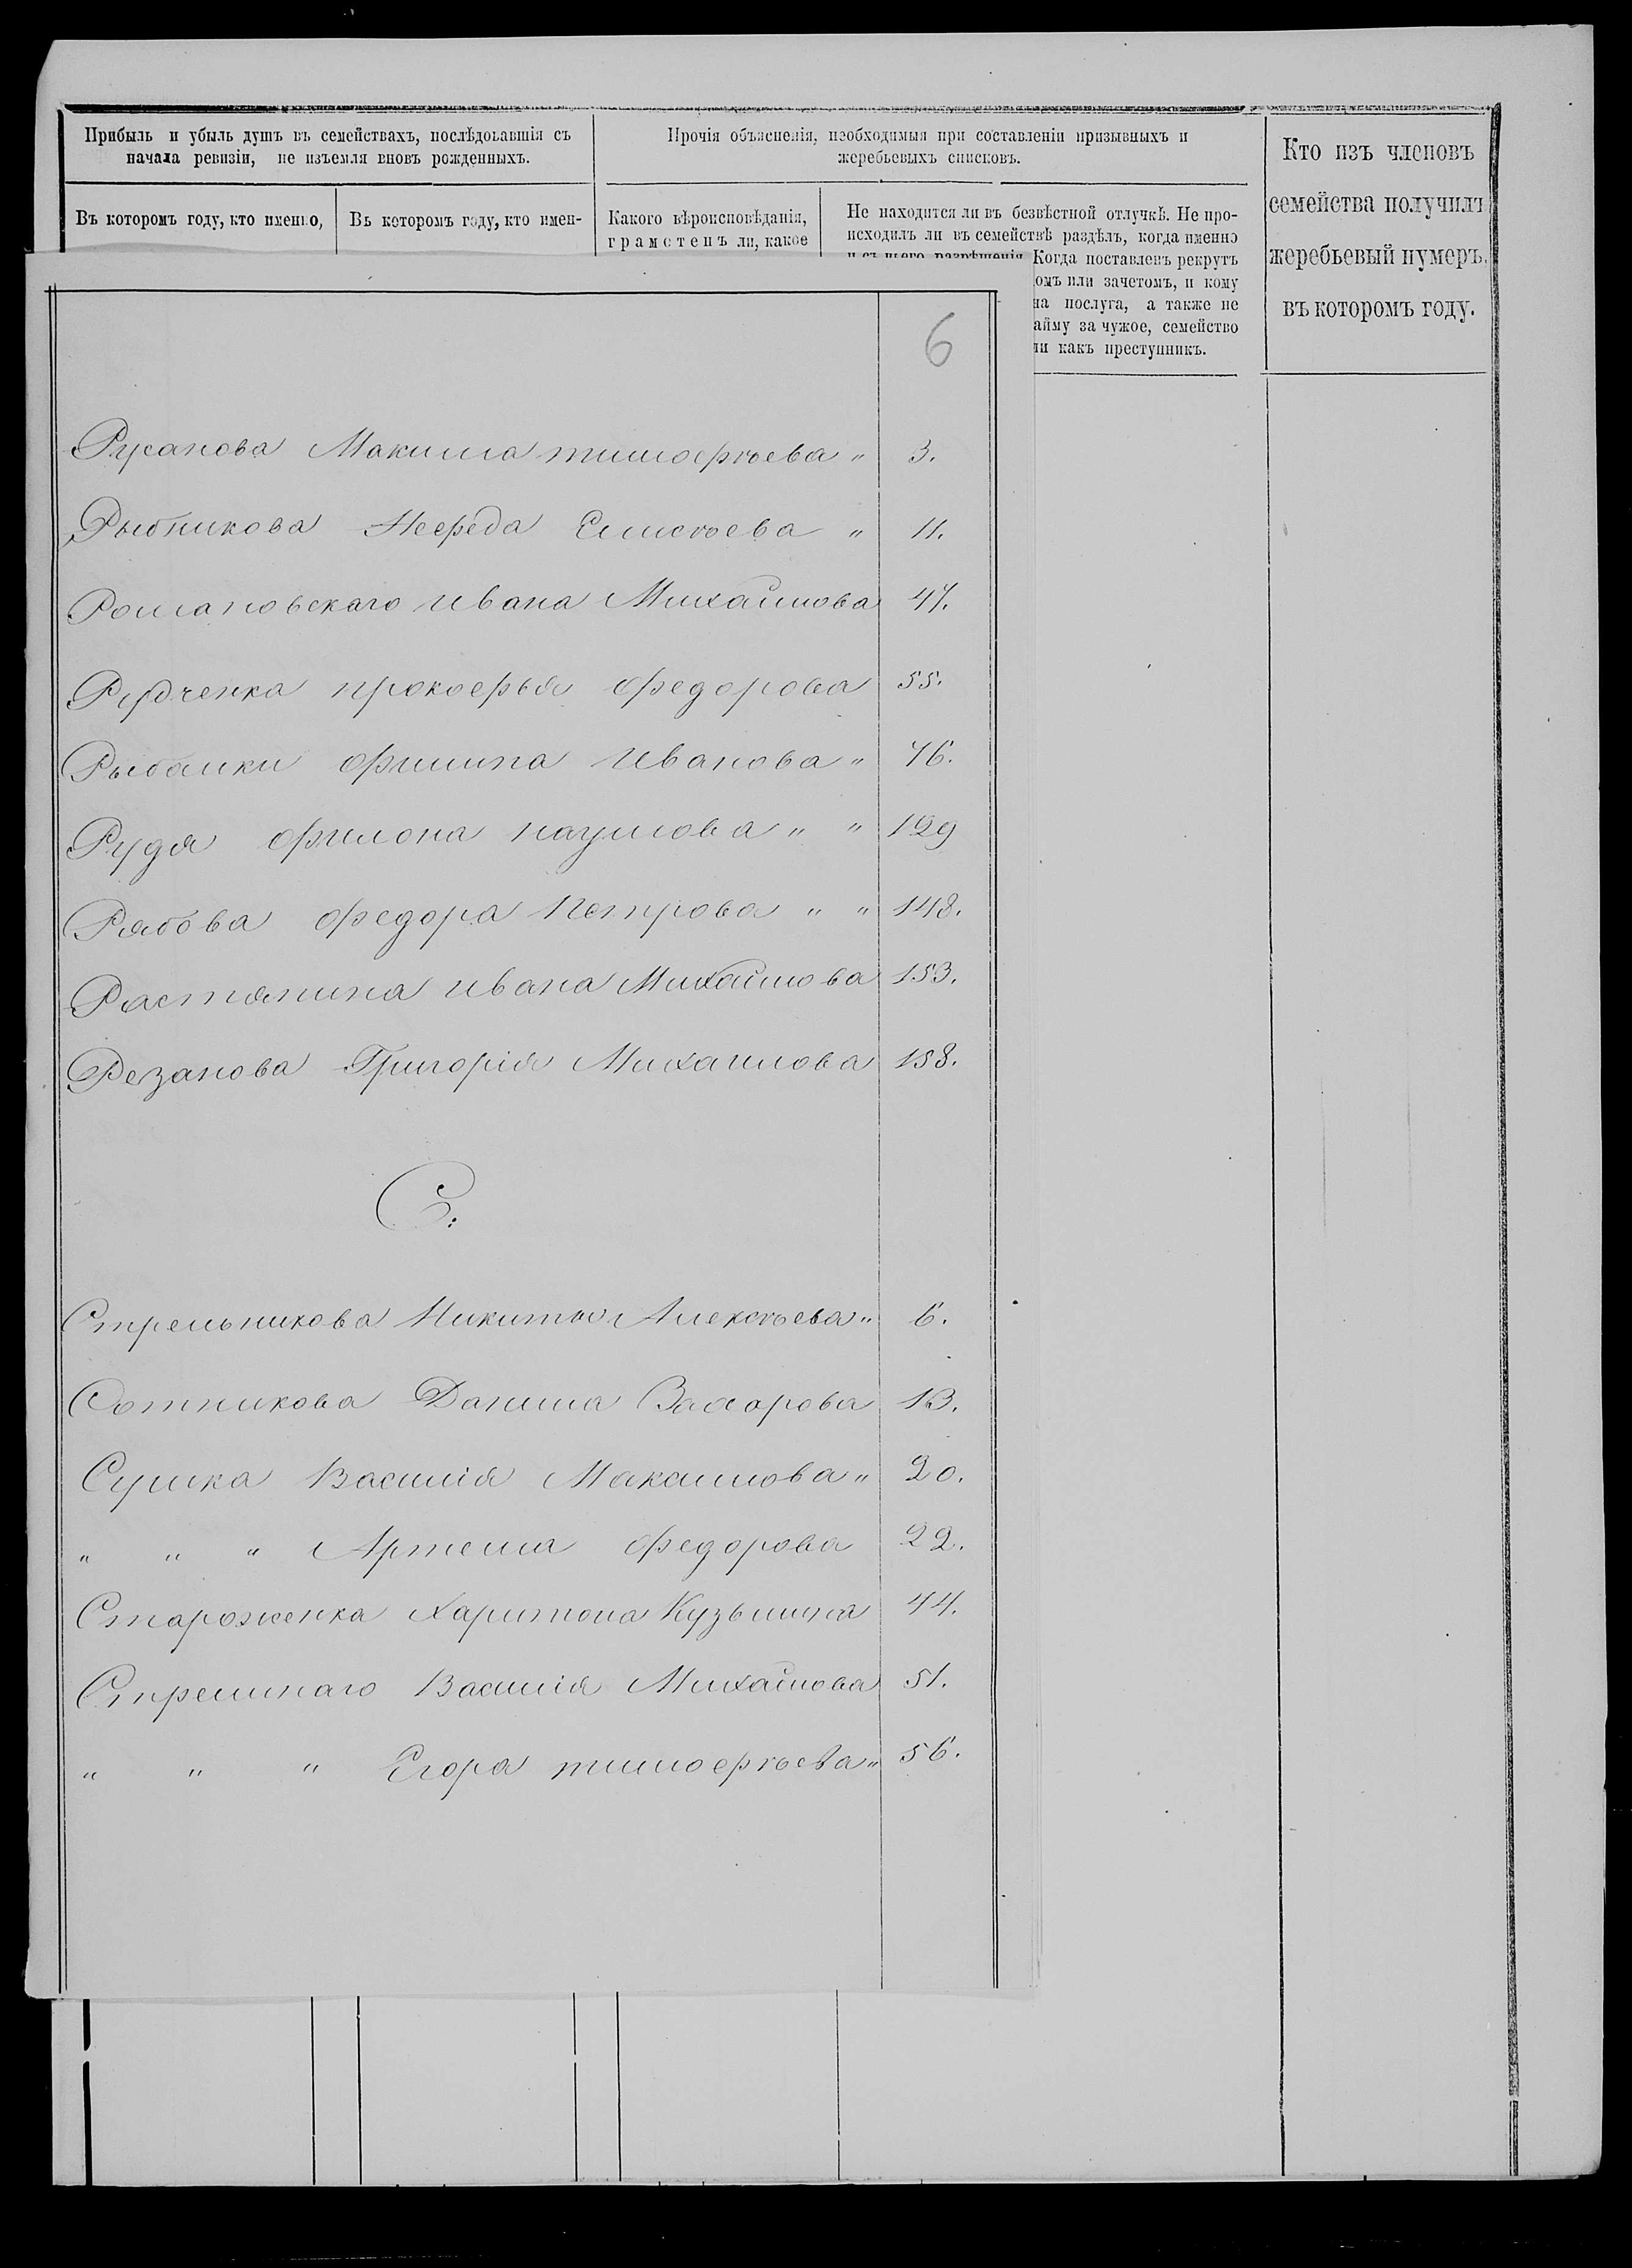 Прибыль и убыль душъ въ семействахъ, послѣдовавшія съ
начала ревизіи, не изъемля вновь рожденныхъ.
Прочія объясненія, необходимыя при составленіи призывныхъ и
жеребьевыхъ списковъ.
Кто изъ членовъ
семейства получилъ
жеребьевый нумеръ,
въ которомъ году.
Въ которомъ году, кто именно,
Въ которомъ году, кто имен-
Какого вѣроисповѣданія,
грамотенъ ли, какое
Не находится ли въ безвѣстной отлучкѣ. Не про-
исходилъ ли въ семействѣ раздѣлъ, когда именно
и съ чьего разрѣшенія Когда поставленъ рекрутъ
омъ или зачетомъ, и кому
на послуга, а также не
айму за чужое, семейство
ли какъ преступникъ.
6
Русанова Макима тимофѣева " 3.
Рыбникова Нефеда Елисѣева " 11.
Романовскаго Ивана Михайлова 47.
Рудченка прокофья Федорова 55.
Рыбалки Филипа Иванова " 76.
Рудя Филона наумова " " 129
Рябова Федора Петрова " " 148.
Растянина Ивана Михайлова 153.
Резанова Григорія Михаилова 158.
С.
Стрельникова Никиты Алексѣева " 6.
Сотникова Данила Захарова 13.
Сушка Василія Максимова " 20.
" " " Артема Федорова 22.
Староженка Харитона Кузьмина 44.
Стремнаго Василія Михайлова 51.
" " " Егора тимофѣева " 56.